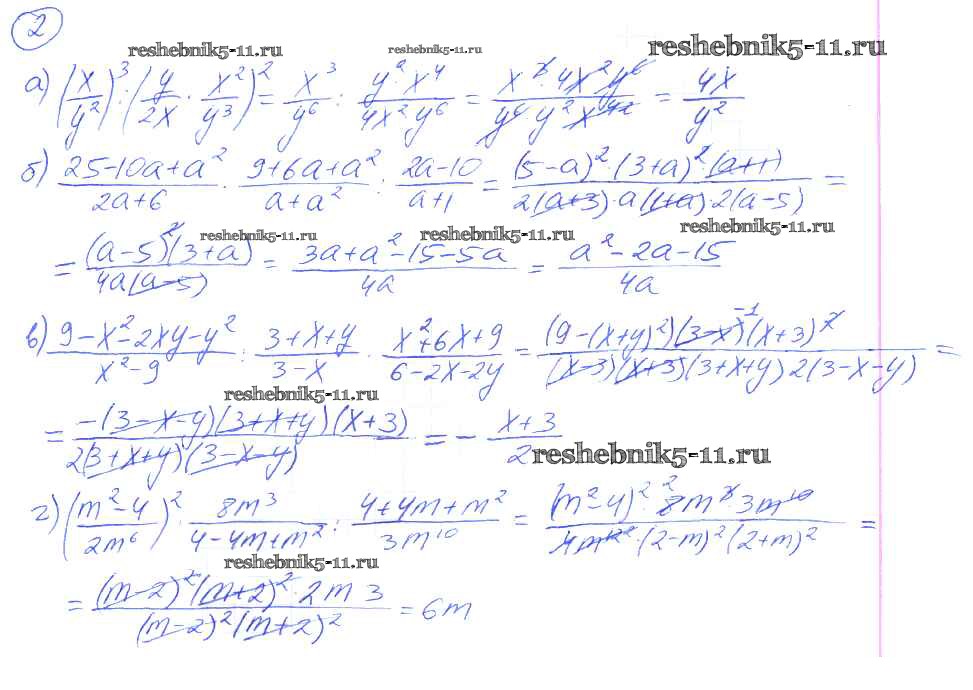 2
reshebnik5-11.ru reshebnik5-11.ru reshebnik5-11.ru
а) (x/y²)³ : (y/2x · x²/y³)² = x³/y⁶ : y²·x⁴/4x²y⁶ = x³·4x²y⁶/y⁶y²x⁴ = 4x/y²
б) 25-10a+a²/2a+6 · 9+6a+a²/a+a² : 2a-10/a+1 = (5-a)²·(3+a)²·(a+1)/2(a+3)·a(1+a)·2(a-5) =
reshebnik5-11.ru reshebnik5-11.ru reshebnik5-11.ru
= (a-5)²(3+a)/4a(a-5) = 3a+a²-15-5a/4a = a²-2a-15/4a
в) 9-x²-2xy-y²/x²-9 : 3+x+y/3-x · x²+6x+9/6-2x-2y = (9-(x+y)²)(3-x)⁻¹(x+3)²/(x-3)(x+3)(3+x+y)2(3-x-y) =
reshebnik5-11.ru
= -(3-x-y)(3+x+y)(x+3)/2(3+x+y)(3-x-y) = - x+3/2
reshebnik5-11.ru
г) (m²-4/2m⁶)² · 8m³/4-4m+m² : 4+4m+m²/3m¹⁰ = (m²-4)²·8m³·3m¹⁰/4m¹²·(2-m)²(2+m)² =
reshebnik5-11.ru
= (m-2)²(m+2)²·2m3/(m-2)²(m+2)² = 6m